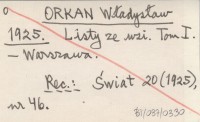 ORKAN Władysław
1925. Listy ze wsi. Tom I.
— Warszawa.
Rec.: Świat 20 (1925),
nr 46.